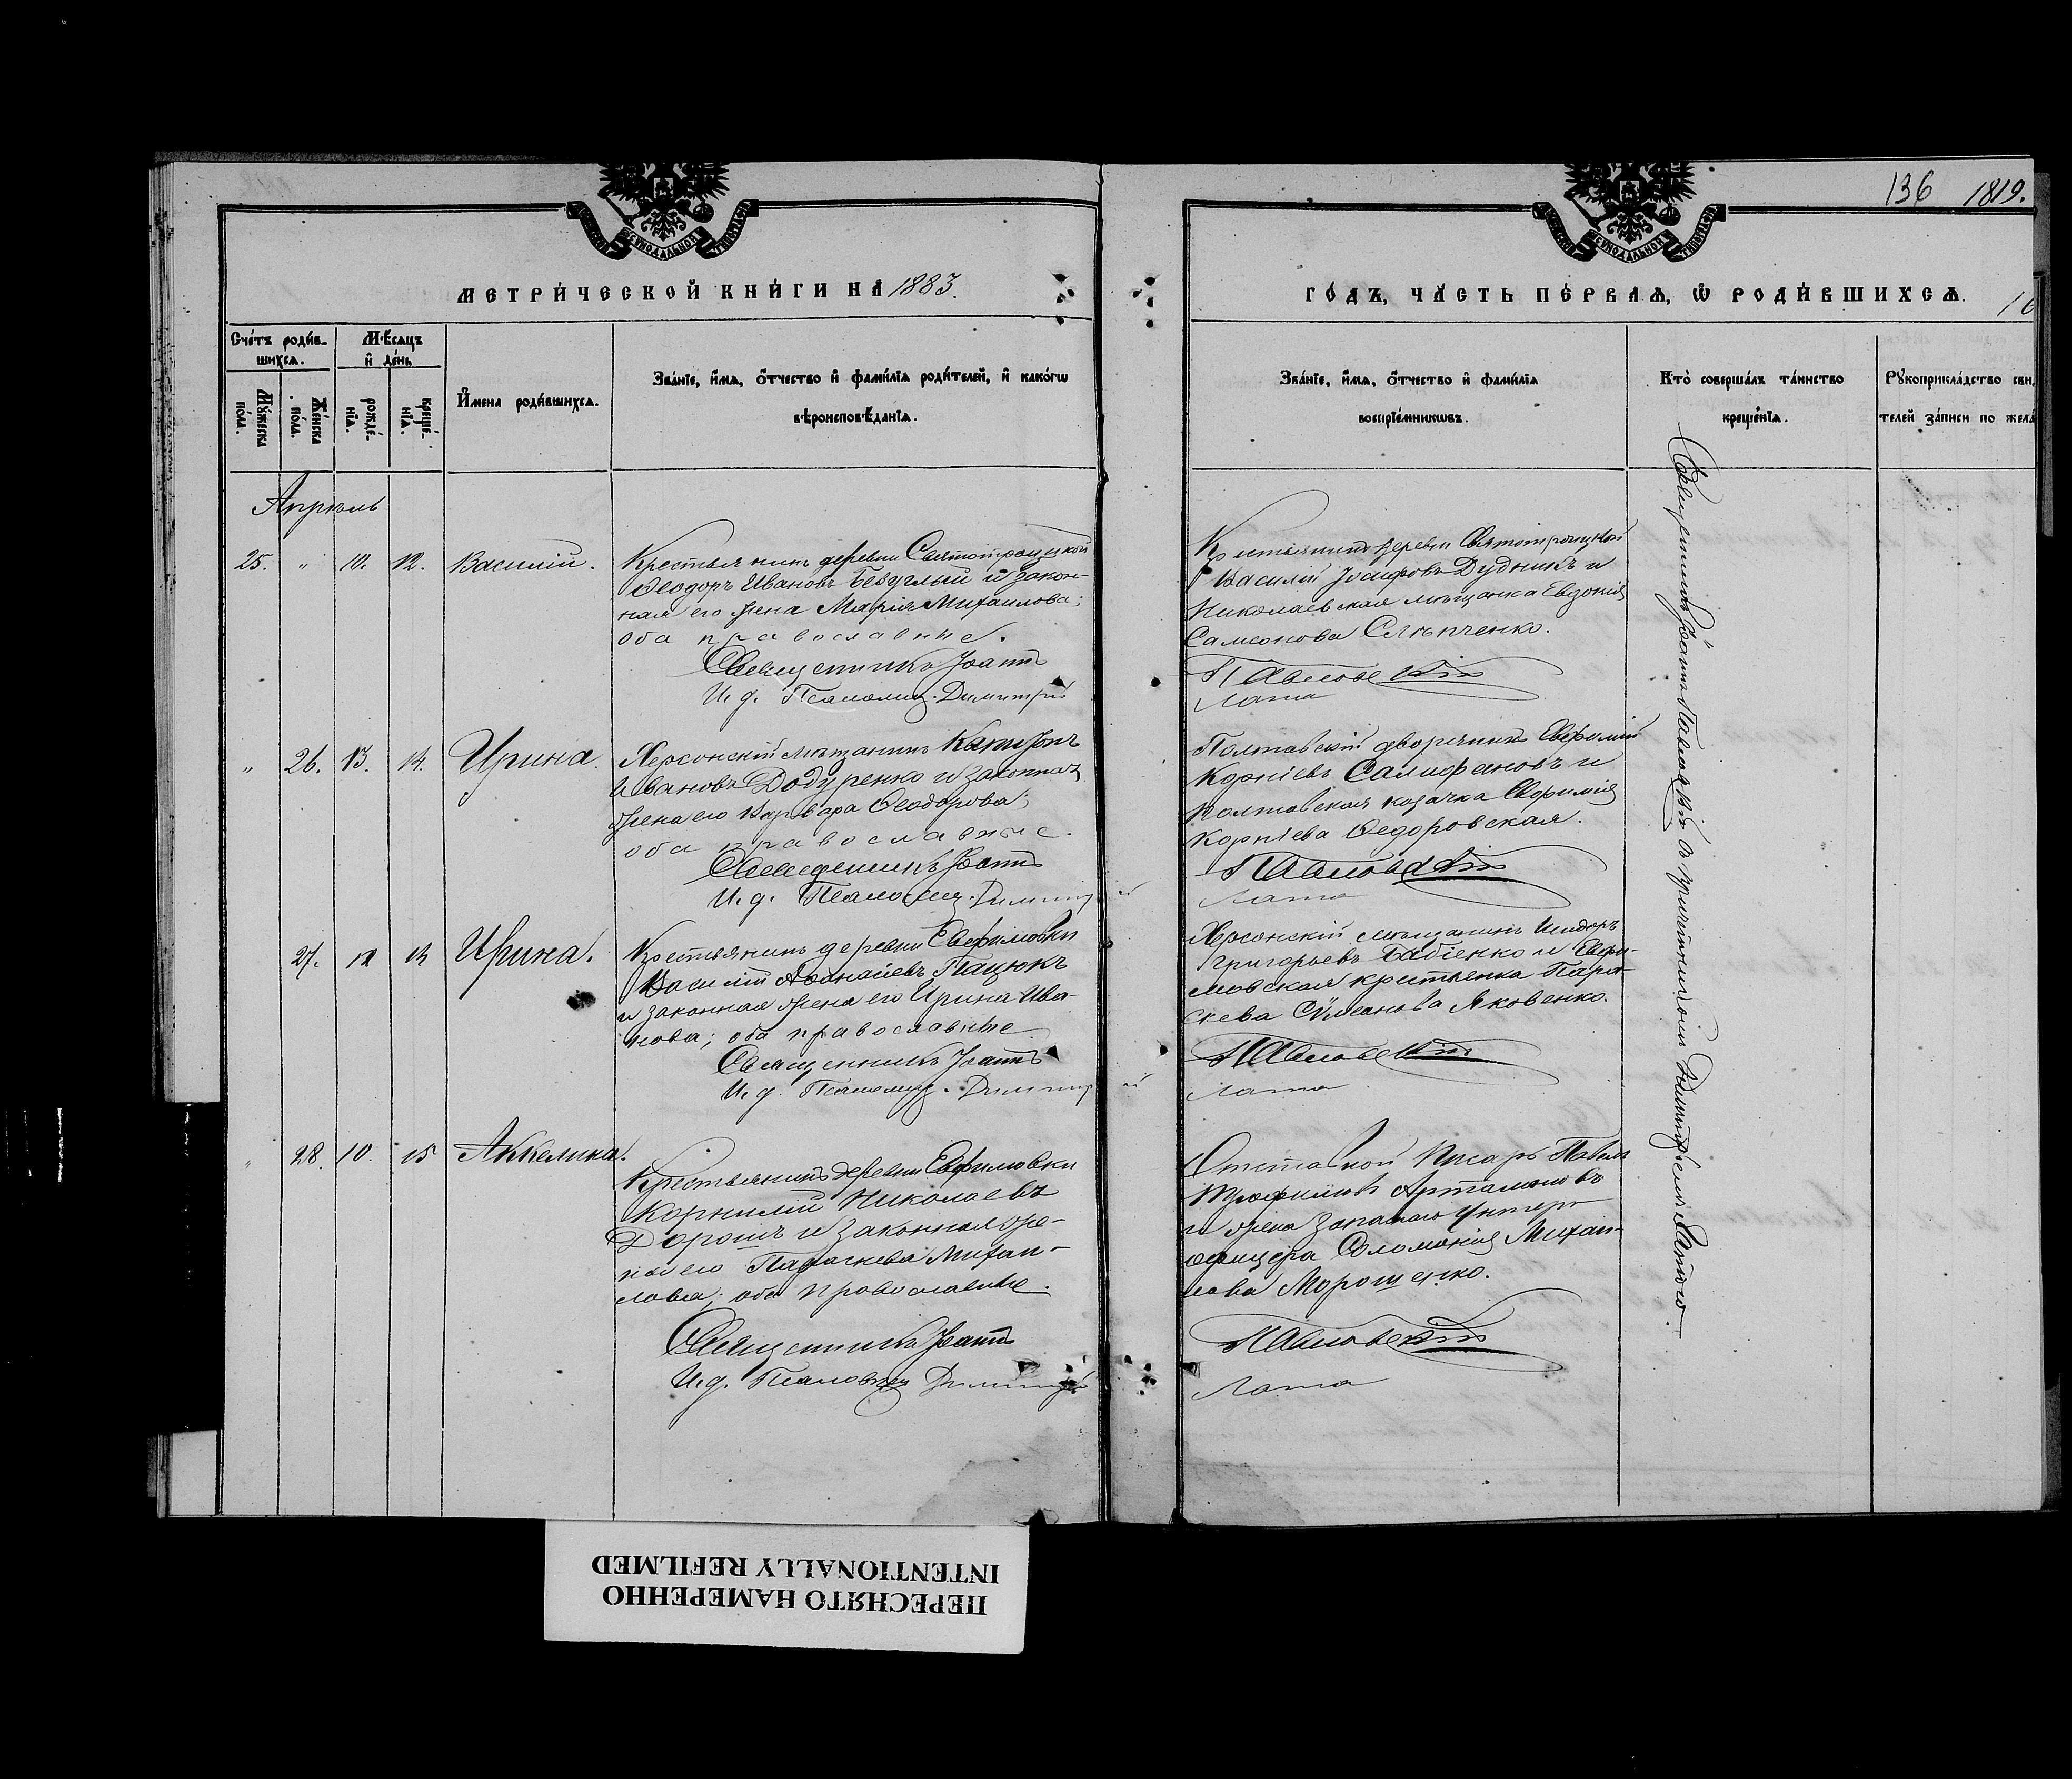 136 1819.
МОСКОВСКОЙ СѴНОДАЛЬНОЙ ТИПОГРАФІИ
МЕТРИ́ЧЕСКОЙ КНИ́ГИ НА 1883.
ГО́ДЪ, ЧА́СТЬ ПЕ́РВАѦ, Ѡ҆ РОДИ́ВШИХСѦ.
Сче́тъ роди́в-
шихсѧ.
Му́жеска
по́ла.
Же́нска
по́ла.
Мѣ́сѧцъ
и҆ де́нь
рожде́-
нїѧ.
креще́-
нїѧ.
И҆́мена роди́вшихсѧ.
Зва́нїе, и҆́мѧ, ѻ҆́тчество и҆ фами́лїѧ роди́телей, и҆ како́гѡ
вѣроисповѣ́данїѧ.
Зва́нїе, и҆́мѧ, ѻ҆́тчество и҆ фами́лїѧ
воспрїе́мникѡвъ.
Кто̀ соверша́лъ та́инство
креще́нїѧ.
Рꙋкоприкла́дство сви
телей за́писи по жела
Апрѣль
25. " 10. 12. Василій.
Крестьянинъ деревни Святотроицкой
Ѳеодоръ Ивановъ Безуглый и закон-
ная его жена Марія Михаилова;
оба православные.
Священникъ Іоаннъ
И. д. Псаломщ. Димитрій
Крестьянинъ деревни Святотроицкой
Василій Іосифовъ Дудникъ и
Николаевская мѣщанка Евдокія
Самсонова Слѣпченко.
Павловскій
Лата
" 26. 13. 14. Ирина.
Херсонскій мѣщанинъ
Ивановъ Додуренко и законная
жена его Варвара Ѳеодорова;
оба православные.
Священникъ Іоаннъ
И. д. Псаломщ. Димитрій
Полтавскій дворянинъ Евфимій
Корніевъ Салифановъ и
Полтавская козачка Евфимія
Корніева Ѳедоровская.
Павловскій
Лата
27. 12 13 Ирина.
Крестьянинъ деревни Евфимовки
Василій Аѳанасіевъ Пацюкъ
и законная жена его Ирина Ива-
нова; оба православные
Священникъ Іоаннъ
И. д. Псаломщ. Димитрій
Херсонскій мѣщанинъ Исидоръ
Григорьевъ Бабіенко и Евфи-
мовская крестьянка Пара-
скева Симеонова Яковенко.
Павловскій
Лата
" 28. 10. 15 Анжелика.
Крестьянинъ деревни Евфимовки
Корнилій Николаевъ
Дорошъ и законная же-
на его Параскева Михаи-
лова; оба православные.
Священникъ Іоаннъ
И. д. Псаломщ Димитрій
Отставной писарь Павелъ
Трофимовъ Артамоновъ
и жена запаснаго унтеръ
офицера Соломонія Михаи-
лова Морошенко.
Павловскій
Лата
Священникъ Іоаннъ Павловскій съ причетникомъ Димитріемъ Латою.
ПЕРЕСНЯТО НАМЕРЕННО
INTENTIONALLY REFILMED